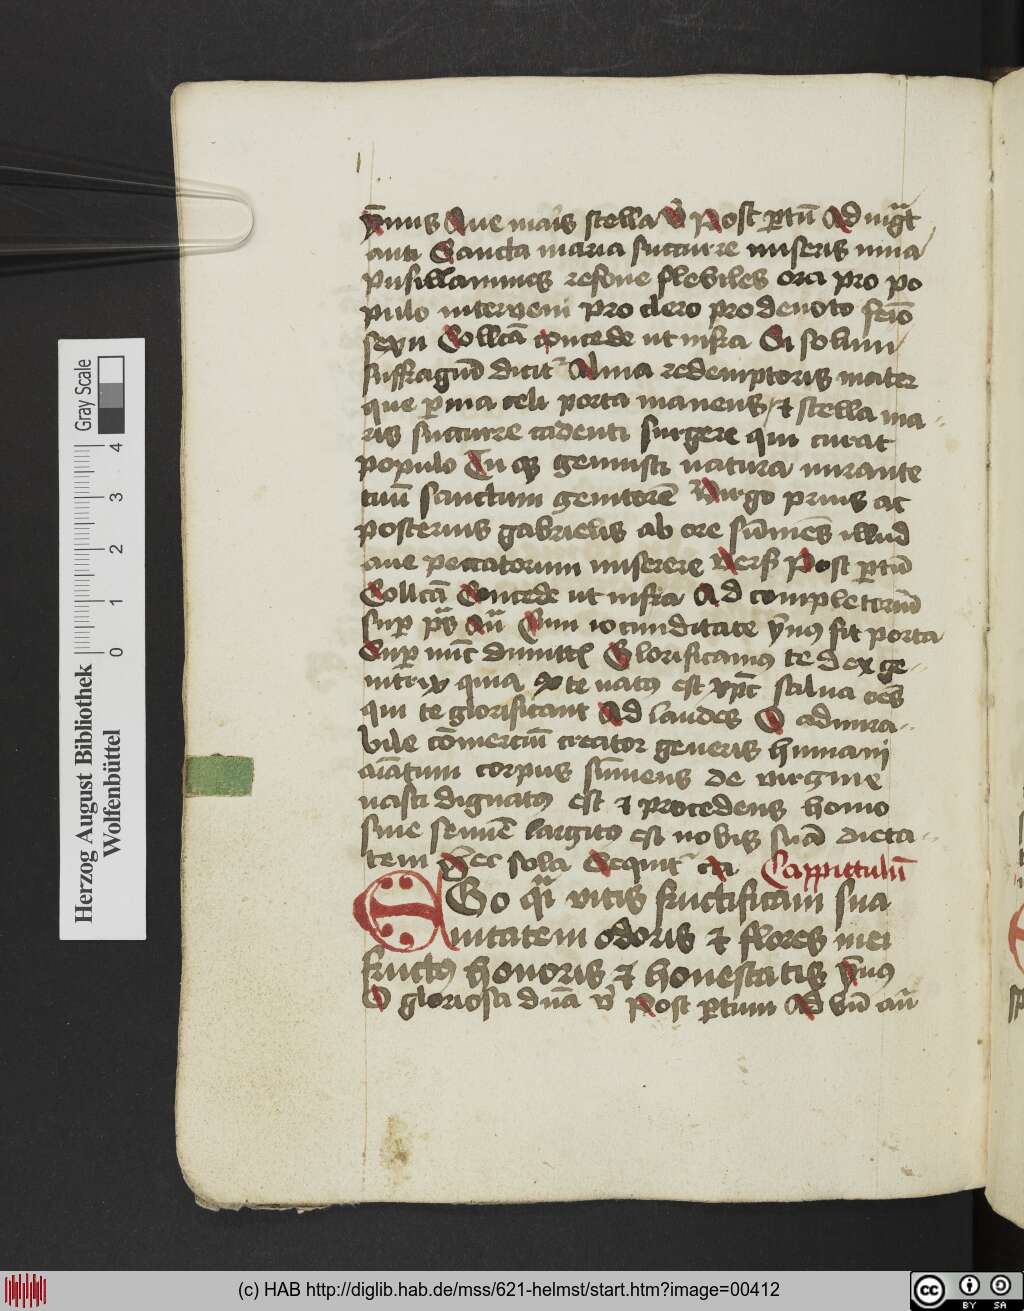 ȳmus Aue maris stella v̉ Post ꝑtū Ad mg̃t
anti Sancta maria succurre miseris iuua
pusillanimes refoue flebiles ora pro po
pulo interueni pro clero pro deuoto feīo
sexu Collcā concede ut infra Si solum
suffragiū dicit᷑ Alma redemptoris mater
que ꝑuia celi porta manens / ⁊ stella ma-
ris succurre cadenti surgere qui curat
populo Tu que genuisti natura mirante
tuū sanctum genitorē Virgo prius ac
posterius gabrielis ab ore sūmēs illud
aue peccatorum miserere Vers9 Post ꝑtū
Collcā Concede ut infra Ad completoriū
Suꝑ ps̄ Aū Cum iocunditate ȳnus fit porta
Suꝑ nūc dimitt Glorificamus te dei ge-
nitrix quia ex te natus est xpc salua oēs
qui te glorificant Ad laudes O admira-
bile cōmerciū creator generis humani
aīatum corpus sūmens de virgine
nasci dignatus est ⁊ procedens homo
sine semīe largitus est nobis suā dieta-
tem Hec sola Sequit᷑ cā Cappittulū
EGo q̄si vitis fructificaui sua
uitatem odoris ⁊ flores mei
fructus honoris ⁊ honestatis ȳnus
O gloriosa dn̄a v̉ Post ꝑtum Ad bn̄ aū
Herzog August Bibliothek
Wolfenbüttel
Gray Scale
0 1 2 3 4
(c) HAB http://diglib.hab.de/mss/621-helmst/start.htm?image=00412
cc BY SA